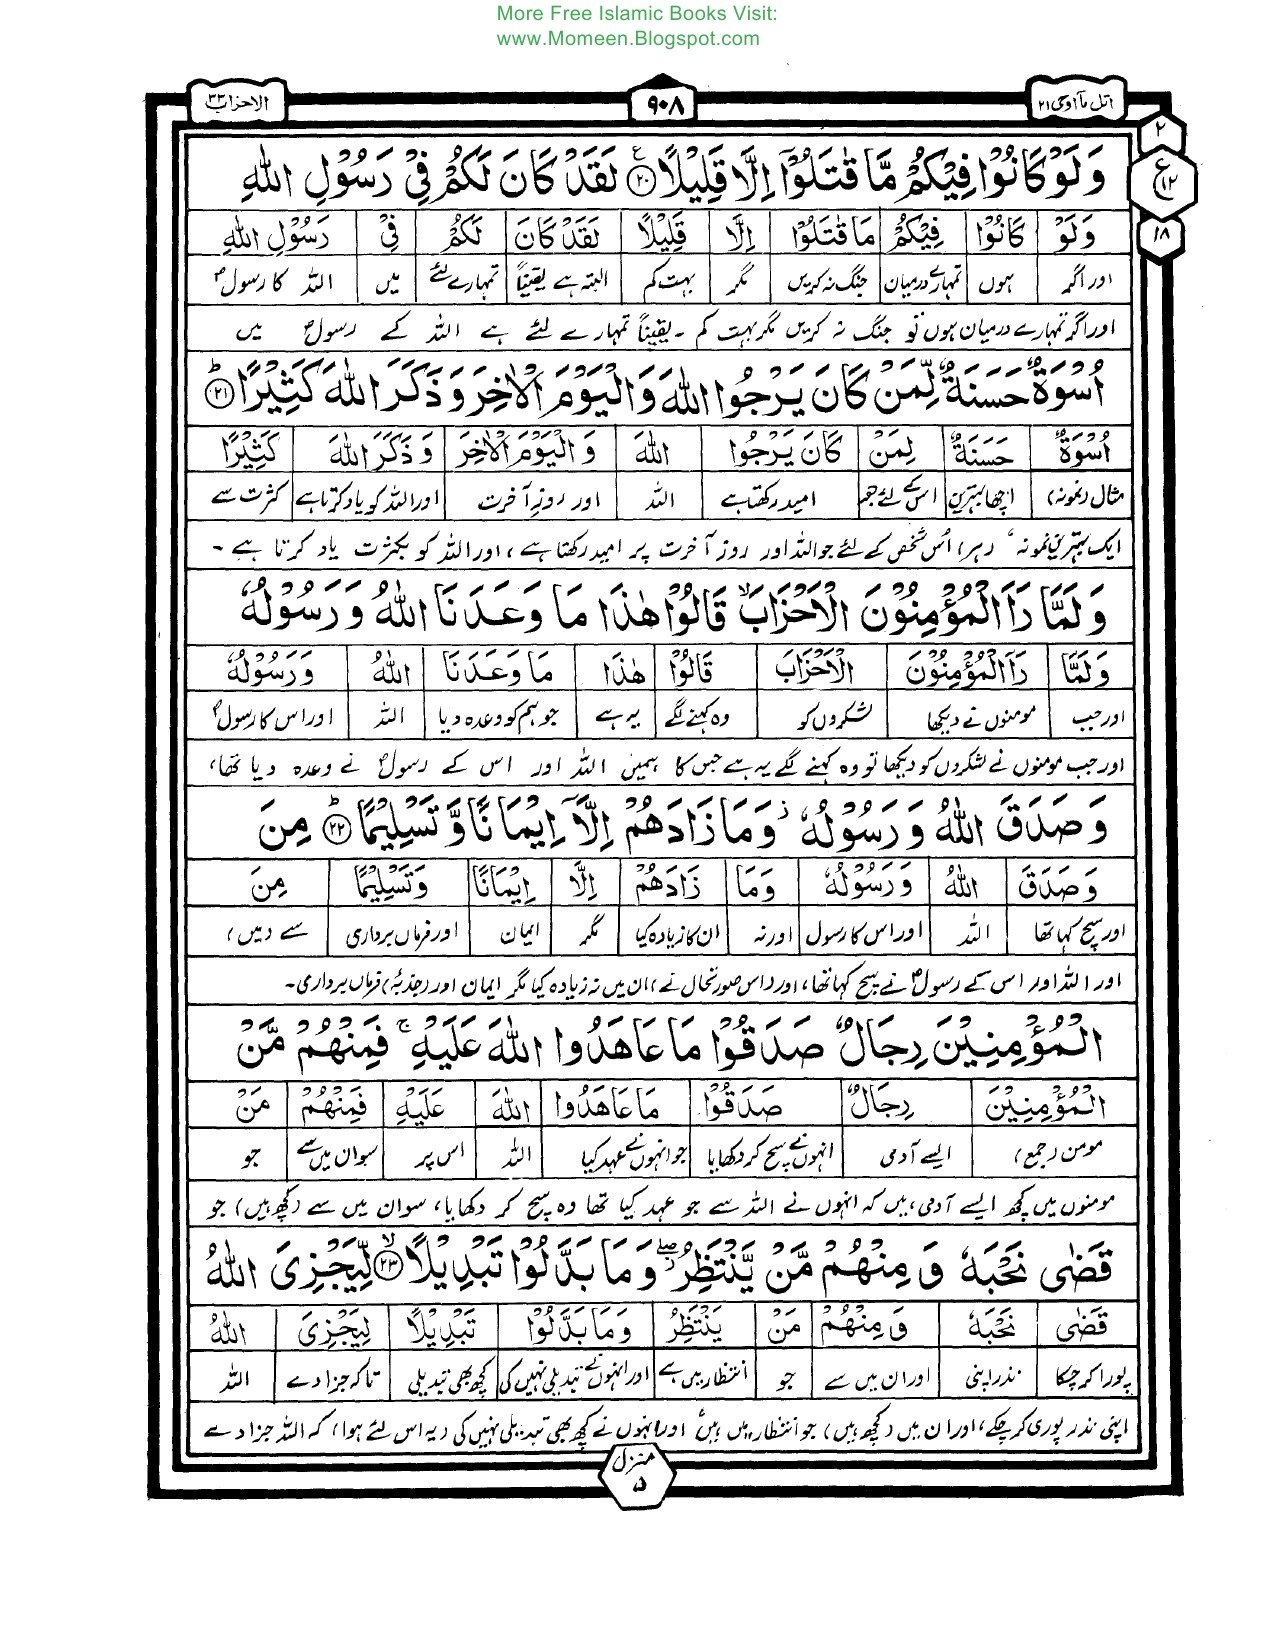 More Free Islamic Books Visit:
www.Momeen.Blogspot.com
اتل مآ اوحی ۲۱
۹۰۸
الاحزاب ۳۳
۲
ع
۱۲
۱۸
وَلَوْ كَانُوْا فِيْكُمْ مَّا قٰتَلُوْٓا اِلَّا قَلِيْلًا ۟ ۲۰ ع لَقَدْ كَانَ لَكُمْ فِيْ رَسُوْلِ اللّٰهِ
وَلَوْ كَانُوْا فِيْكُمْ مَا قٰتَلُوْا اِلَّا قَلِيْلًا لَقَدْ كَانَ لَكُمْ فِيْ رَسُوْلِ اللّٰهِ
اور اگر ہوں تمہارے درمیان جنگ نہ کریں مگر بہت کم البتہ ہے یقیناً تمہارے لئے میں اللہ کا رسولؐ
اور اگر تمہارے درمیان ہوں تو جنگ نہ کریں مگر بہت کم ۔ یقیناً تمہارے لئے ہے اللہ کے رسولؐ میں
اُسْوَةٌ حَسَنَةٌ لِّمَنْ كَانَ يَرْجُوا اللّٰهَ وَالْيَوْمَ الْاٰخِرَ وَذَكَرَ اللّٰهَ كَثِيْرًا ۲۱ ط
اُسْوَةٌ حَسَنَةٌ لِمَنْ كَانَ يَرْجُوا اللّٰهَ وَالْيَوْمَ الْاٰخِرَ وَذَكَرَ اللّٰهَ كَثِيْرًا
مثال (نمونہ) اچھا بہترین اس کے لئے جو امید رکھتا ہے اللہ اور روزِ آخرت اور اللہ کو یاد کرتا ہے کثرت سے
ایک بہترین نمونہ (ہر) اُس شخص کے لئے جو اللہ اور روز آخرت پر امید رکھتا ہے، اور اللہ کو بکثرت یاد کرتا ہے ۔
وَلَمَّا رَاَ الْمُؤْمِنُوْنَ الْاَحْزَابَ ۙ قَالُوْا هٰذَا مَا وَعَدَنَا اللّٰهُ وَرَسُوْلُهٗ
وَلَمَّا رَاَ الْمُؤْمِنُوْنَ الْاَحْزَابَ قَالُوْا هٰذَا مَا وَعَدَنَا اللّٰهُ وَرَسُوْلُهٗ
اور جب مومنوں نے دیکھا لشکروں کو وہ کہنے لگے یہ ہے جو ہم کو وعدہ دیا اللہ اور اس کا رسولؐ
اور جب مومنوں نے لشکروں کو دیکھا تو وہ کہنے لگے یہ ہے جس کا ہمیں اللہ اور اس کے رسولؐ نے وعدہ دیا تھا،
وَصَدَقَ اللّٰهُ وَرَسُوْلُهٗ ز وَمَا زَادَهُمْ اِلَّآ اِيْمَانًا وَّتَسْلِيْمًا ۲۲ ط مِنَ
وَصَدَقَ اللّٰهُ وَرَسُوْلُهٗ وَمَا زَادَهُمْ اِلَّا اِيْمَانًا وَتَسْلِيْمًا مِنَ
اور سچ کہا تھا اللہ اور اس کا رسول اور نہ ان کا زیادہ کیا مگر ایمان اور فرماں برداری سے (میں)
اور اللہ اور اس کے رسولؐ نے سچ کہا تھا، اور (اس صورتحال نے) ان میں نہ زیادہ کیا مگر ایمان اور (جذبۂ) فرماں برداری ۔
الْمُؤْمِنِيْنَ رِجَالٌ صَدَقُوْا مَا عَاهَدُوا اللّٰهَ عَلَيْهِ ج فَمِنْهُمْ مَّنْ
الْمُؤْمِنِيْنَ رِجَالٌ صَدَقُوْا مَا عَاهَدُوا اللّٰهَ عَلَيْهِ فَمِنْهُمْ مَنْ
مومن (جمع) ایسے آدمی انہوں نے سچ کر دکھایا جو انہوں نے عہد کیا اللہ اس پر سو ان میں سے جو
مومنوں میں کچھ ایسے آدمی ہیں کہ انہوں نے اللہ سے جو عہد کیا تھا وہ سچ کر دکھایا، سو ان میں سے (کچھ ہیں) جو
قَضٰى نَحْبَهٗ وَمِنْهُمْ مَّنْ يَّنْتَظِرُ صلے وَمَا بَدَّلُوْا تَبْدِيْلًا ۲۳ لا لِّيَجْزِيَ اللّٰهُ
قَضٰى نَحْبَهٗ وَمِنْهُمْ مَنْ يَنْتَظِرُ وَمَا بَدَّلُوْا تَبْدِيْلًا لِيَجْزِيَ اللّٰهُ
پورا کر چکا نذر اپنی اور ان میں سے جو انتظار میں ہے اور انہوں نے تبدیلی نہیں کی کچھ بھی تبدیلی تاکہ جزا دے اللہ
اپنی نذر پوری کر چکے، اور ان میں (کچھ ہیں) جو انتظار میں ہیں اور انہوں نے کچھ بھی تبدیلی نہیں کی (یہ اس لئے ہوا) کہ اللہ جزا دے
منزل
۵